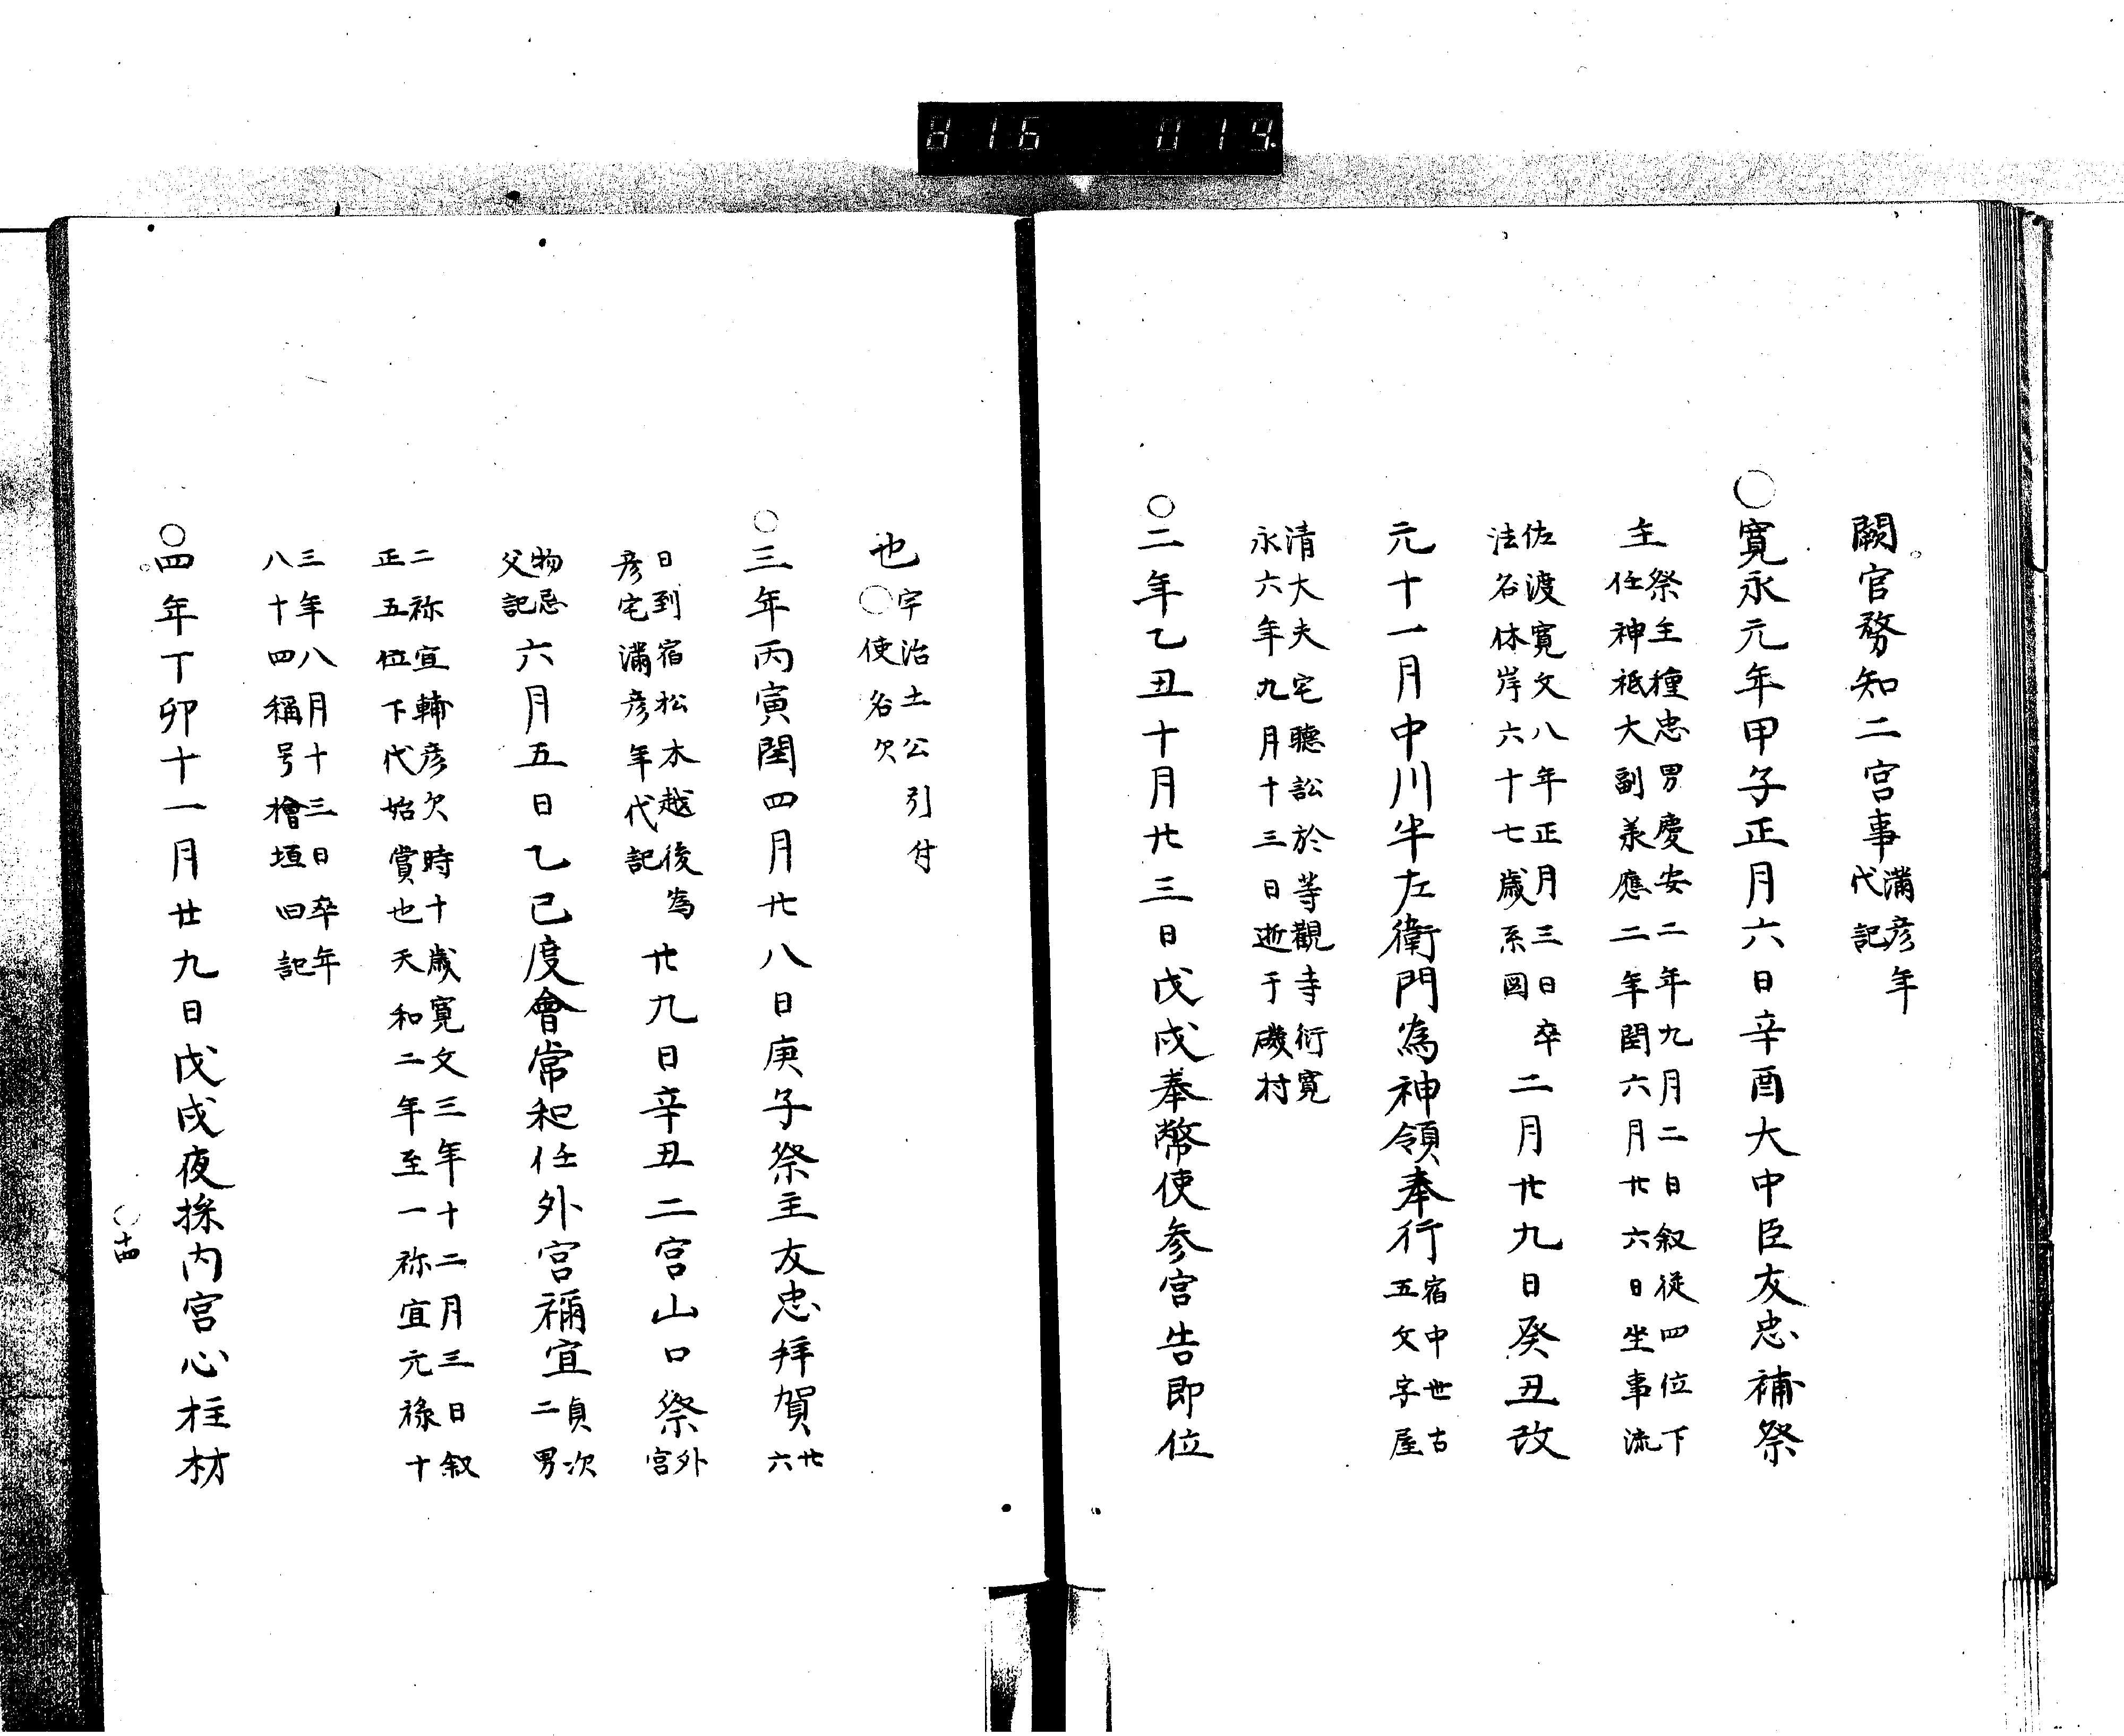 816 019
闕官務知二宮事滿彦年
代記
○寛永元年甲子正月六日辛酉大中臣友忠補祭
主祭主種忠男慶安二年九月二日叙從四位下
任神祗大副承應二年閏六月廿六日坐事流
佐渡寛文八年正月三日卒
法名休岸六十七歳系図
二月廿九日癸丑改
元十一月中川半左衛門為神領奉行宿中世古
五文字屋
清大夫宅聽訟於等觀寺衍寛
永六年九月十三日逝于磯村
○二年乙丑十月廿三日戊戌奉幣使参宮告即位
也宇治土公引付
○使名欠
○三年丙寅閏四月廿八日庚子祭主友忠拜賀廿
六
日到宿松木越後為
彦宅滿彦年代記
廿九日辛丑二宮山口祭外
宮
物忌
父記
六月五日乙巳度會常和任外宮禰宜貞次
二男
二祢宜輔彦欠時十歳寛文三年十二月三日叙
正五位下代始賞也天和二年至一祢宜元祿十
三年八月十三日卒年
八十四稱号檜垣旧記
○四年丁卯十一月廿九日戊戌夜採内宮心柱材
○十四